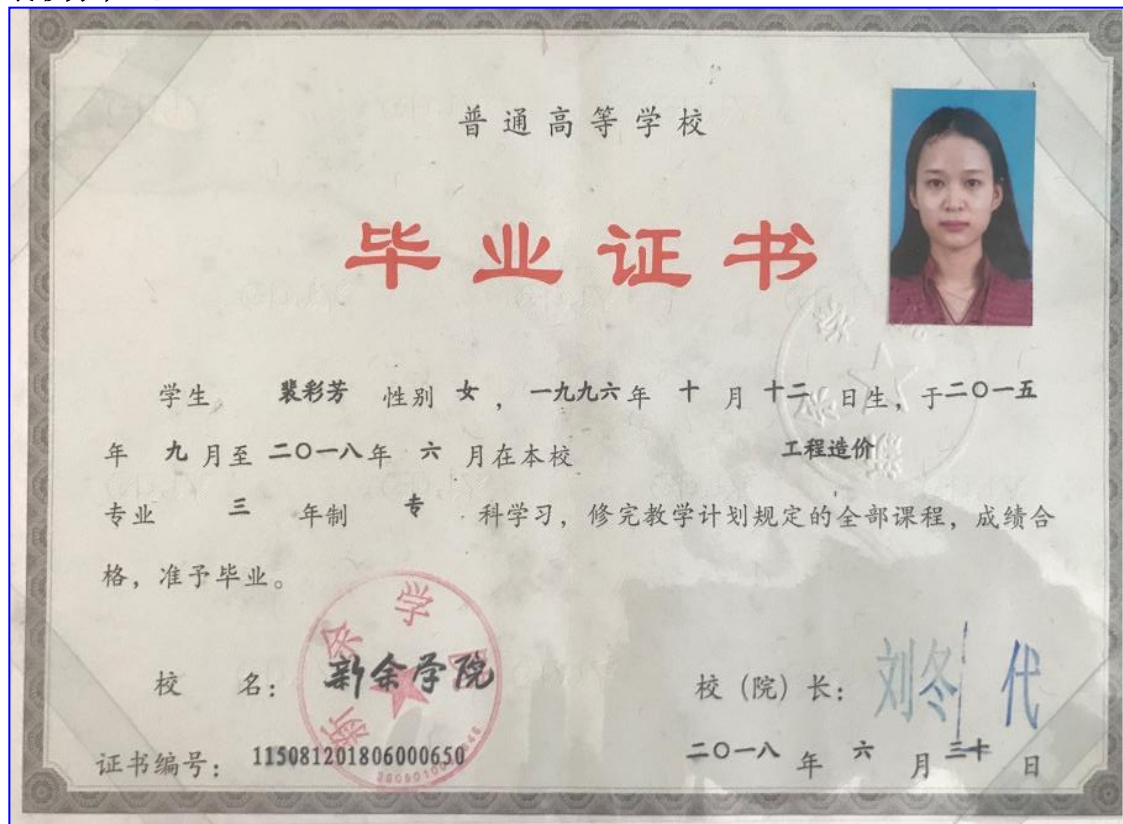 普通高等学校
毕业证书
学生 裴彩芳 性别 女，一九九六年 十 月 十二 日生，于二〇一五
年 九 月至 二〇一八年 六 月在本校 工程造价
专业 三 年制 专 科学习，修完教学计划规定的全部课程，成绩合
格，准予毕业。
校 名：新余学院
校（院）长：刘冬 代
证书编号：115081201806000650
二〇一八 年 六 月 三十 日
新余学院